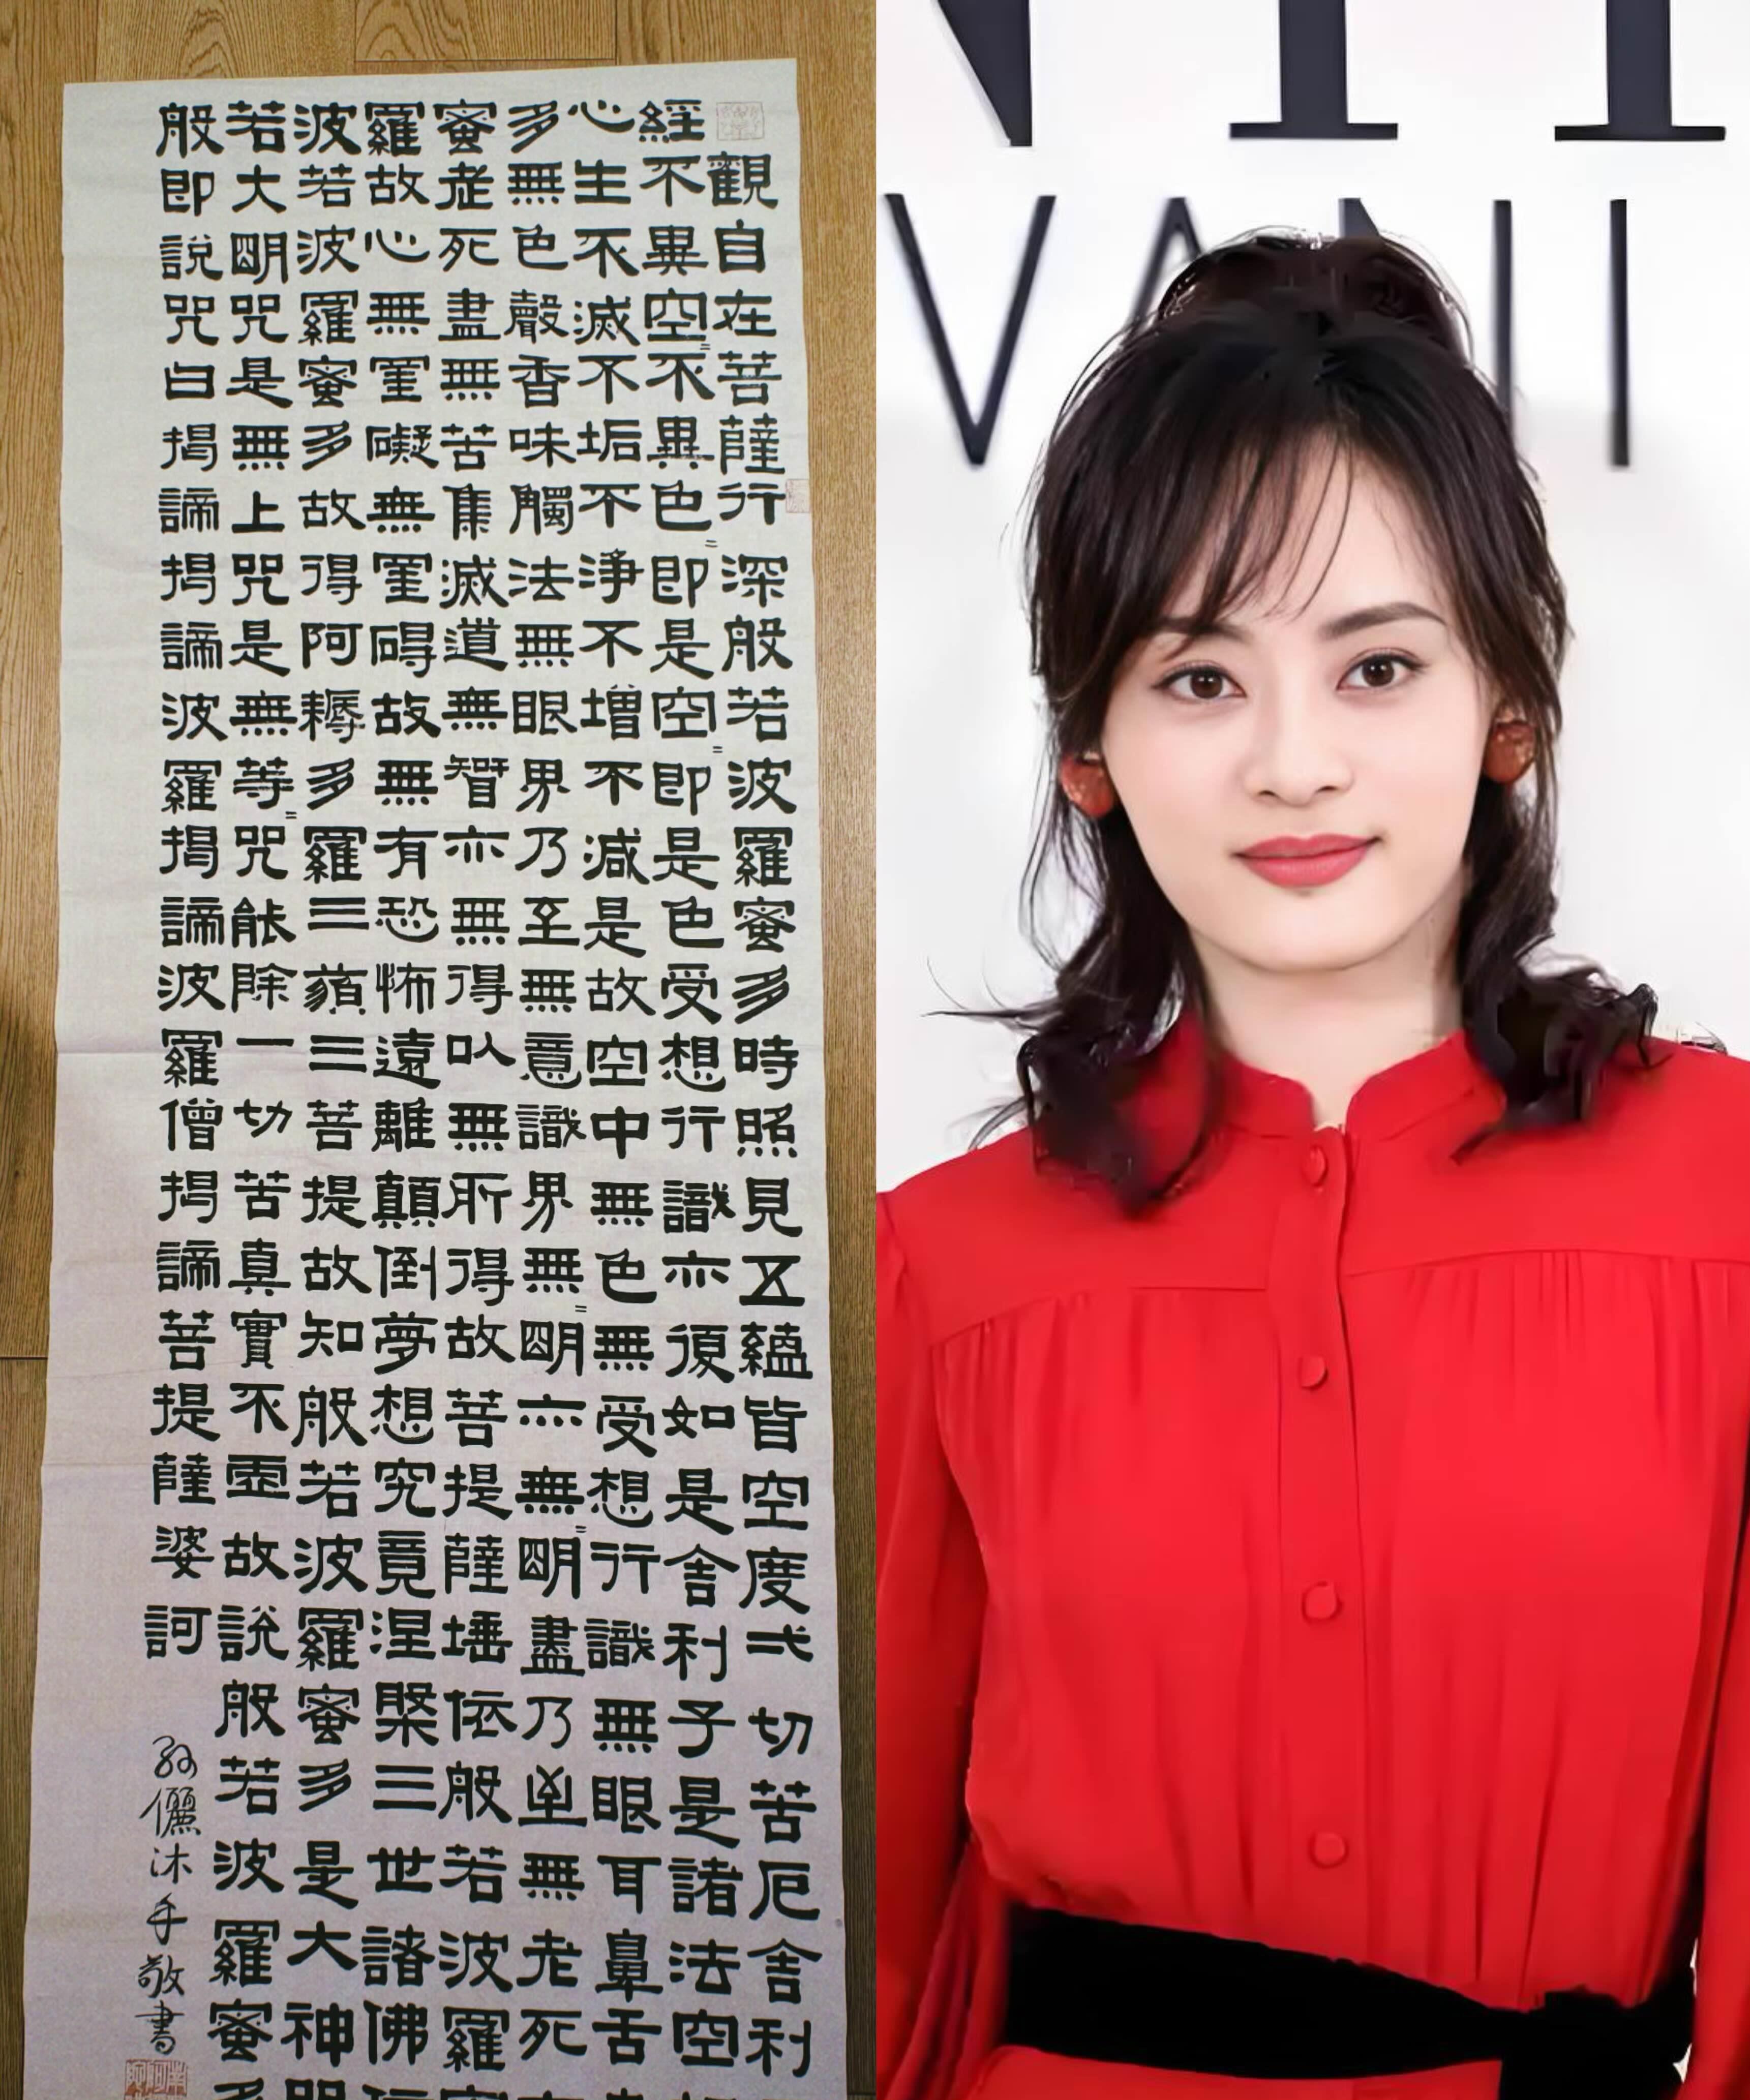 般若波羅蜜多心經
觀自在菩薩行深般若波羅蜜多時照見五蘊皆空度弌切苦厄舍利
不異空〻不異色〻即是空〻即是色受想行識亦復如是舍利子是諸法空
生不滅不垢不淨不增不減是故空中無色無受想行識無眼耳鼻舌
無色聲香味觸法無眼界乃至無意識界無〻明亦無〻明盡乃至無老死
老死盡無苦集滅道無智亦無得以無所得故菩提薩埵依般若波羅
故心無罣礙無罣碍故無有恐怖遠離顛倒夢想究竟涅槃三世諸佛
若波羅蜜多故得阿耨多羅三藐三菩提故知般若波羅蜜多是大神
大明咒是無上咒是無等〻咒能除一切苦真實不虛故說般若波羅蜜
即說咒曰揭諦揭諦波羅揭諦波羅僧揭諦菩提薩婆訶
孫儷沐手敬書